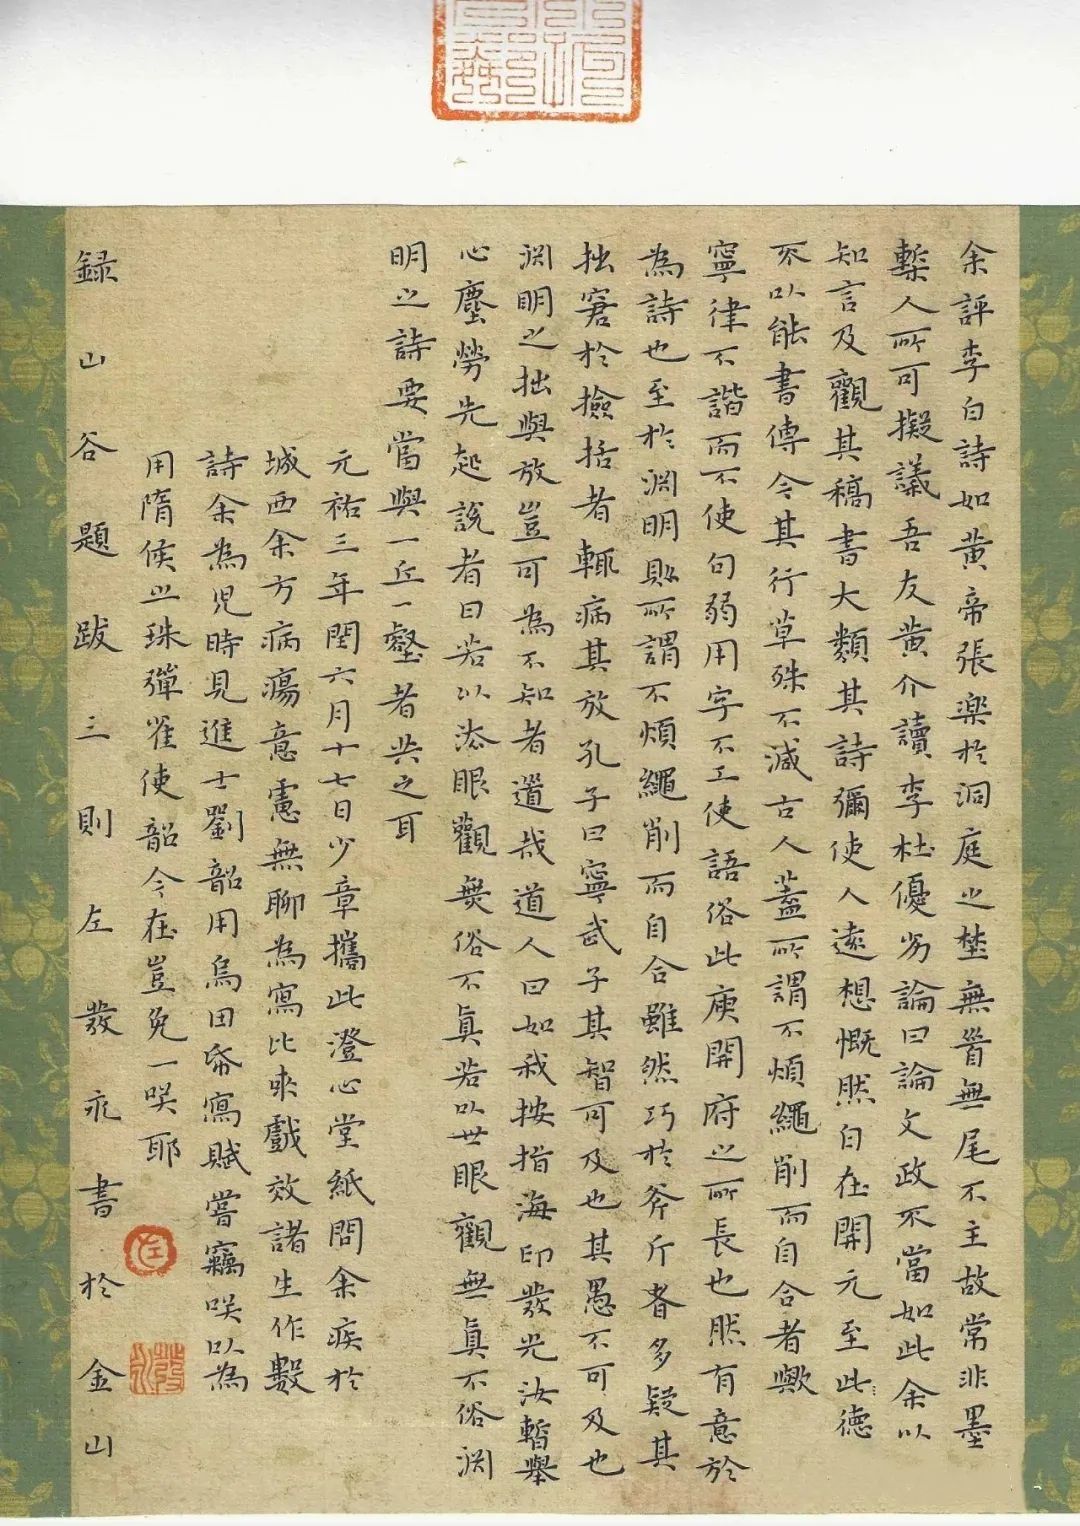 余評李白詩如黄帝張樂於洞庭之埜無首無尾不主故常非墨
槧人所可擬議吾友黄介讀李杜優劣論曰論文政不當如此余以
知言及觀其稿書大類其詩彌使人遠想慨然白在開元至此德
不以能書傳今其行草殊不减古人蓋所謂不煩繩削而自合者歟
寧律不諧而不使句弱用字不工使語俗此庾開府之所長也然有意於
為詩也至於淵明則所謂不煩繩削而自合雖然巧於斧斤者多疑其
拙窘於檢括者輒病其放孔子曰寧武子其智可及也其愚不可及也
渊明之拙與放豈可為不知者道哉道人曰如我按指海印發光汝暫舉
心塵勞先起說者曰若以法眼觀無俗不真若以世眼觀無真不俗渊
明之詩要當與一丘一壑者共之耳
元祐三年閏六月十七日少章攜此澄心堂紙問余疾於
城西余方病瘍意慮無聊為寫比來戲效諸生作數
詩余為兒時見進士劉韶用烏田帋寫賦嘗竊咲以為
用隋侯之珠彈雀使韶今在豈免一咲耶
録山谷題跋三則左發永書於金山
左